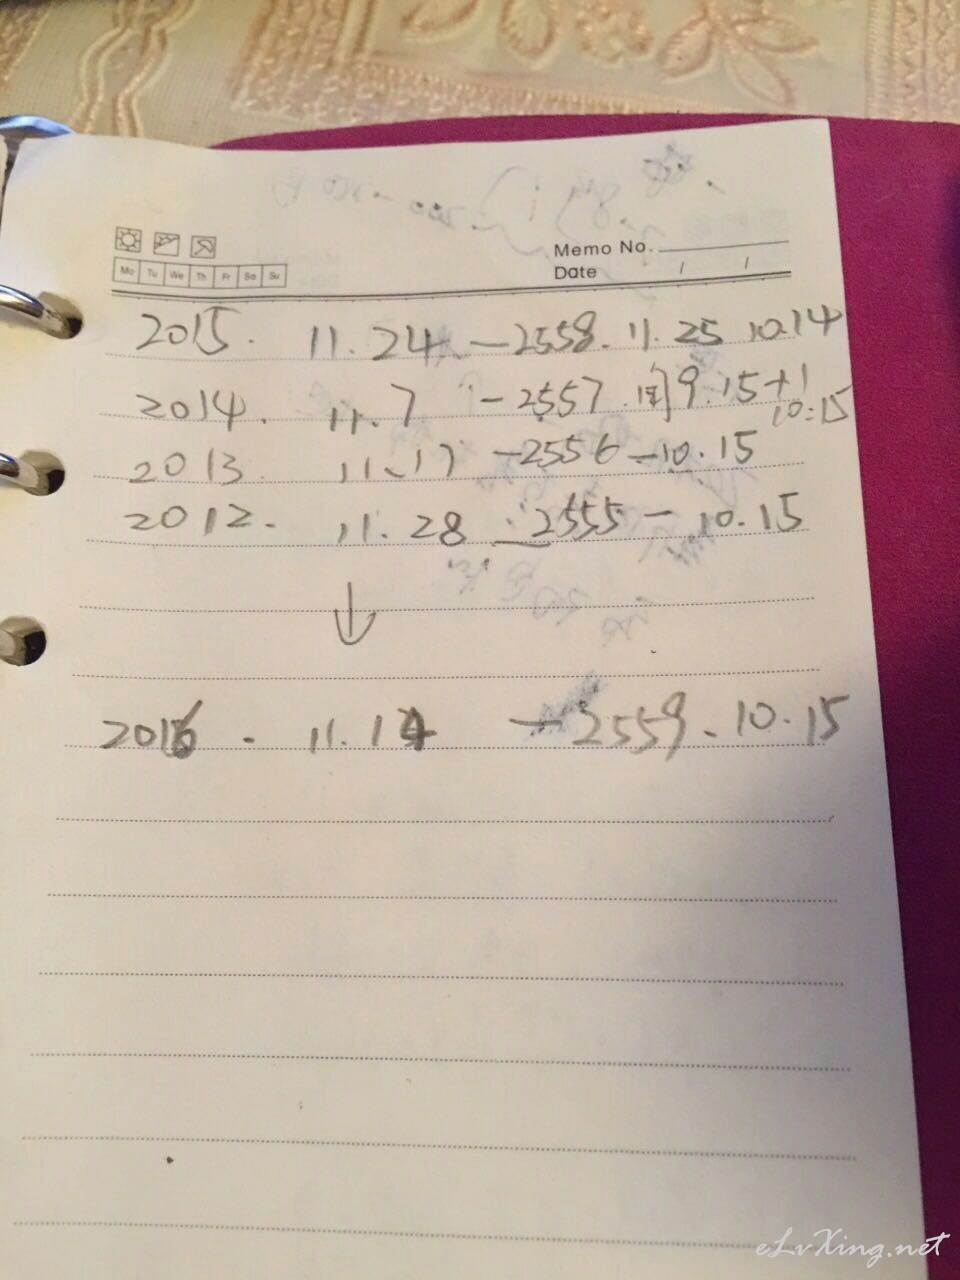 Memo No.
Mo Tu We Th Fr Sa Su
Date / /
2015. 11.24 - 2558. 11.25 10.14
2014. 11.7 - 2557. 闰9.15+1
10.15
2013. 11.17 - 2556 - 10.15
2012. 11.28 - 2555 - 10.15
↓
2016 . 11.14 - 2559. 10.15
eLvXing.net